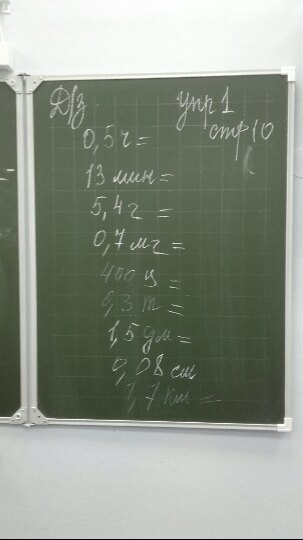 Д/З упр 1
стр 10
0,5 ч =
13 мин =
5,4 г =
0,7 мг =
400 ц =
9,3 т =
1,5 дм =
9,08 см
1,7 км =